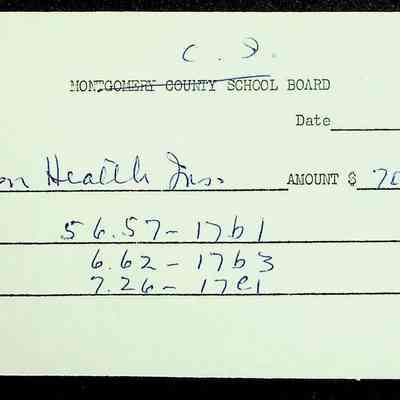 C. I.
MONTGOMERY COUNTY SCHOOL BOARD
Date
on Health Ins. AMOUNT $ 70
56.57 - 17b1
6.62 - 17b3
7.26 - 17e1